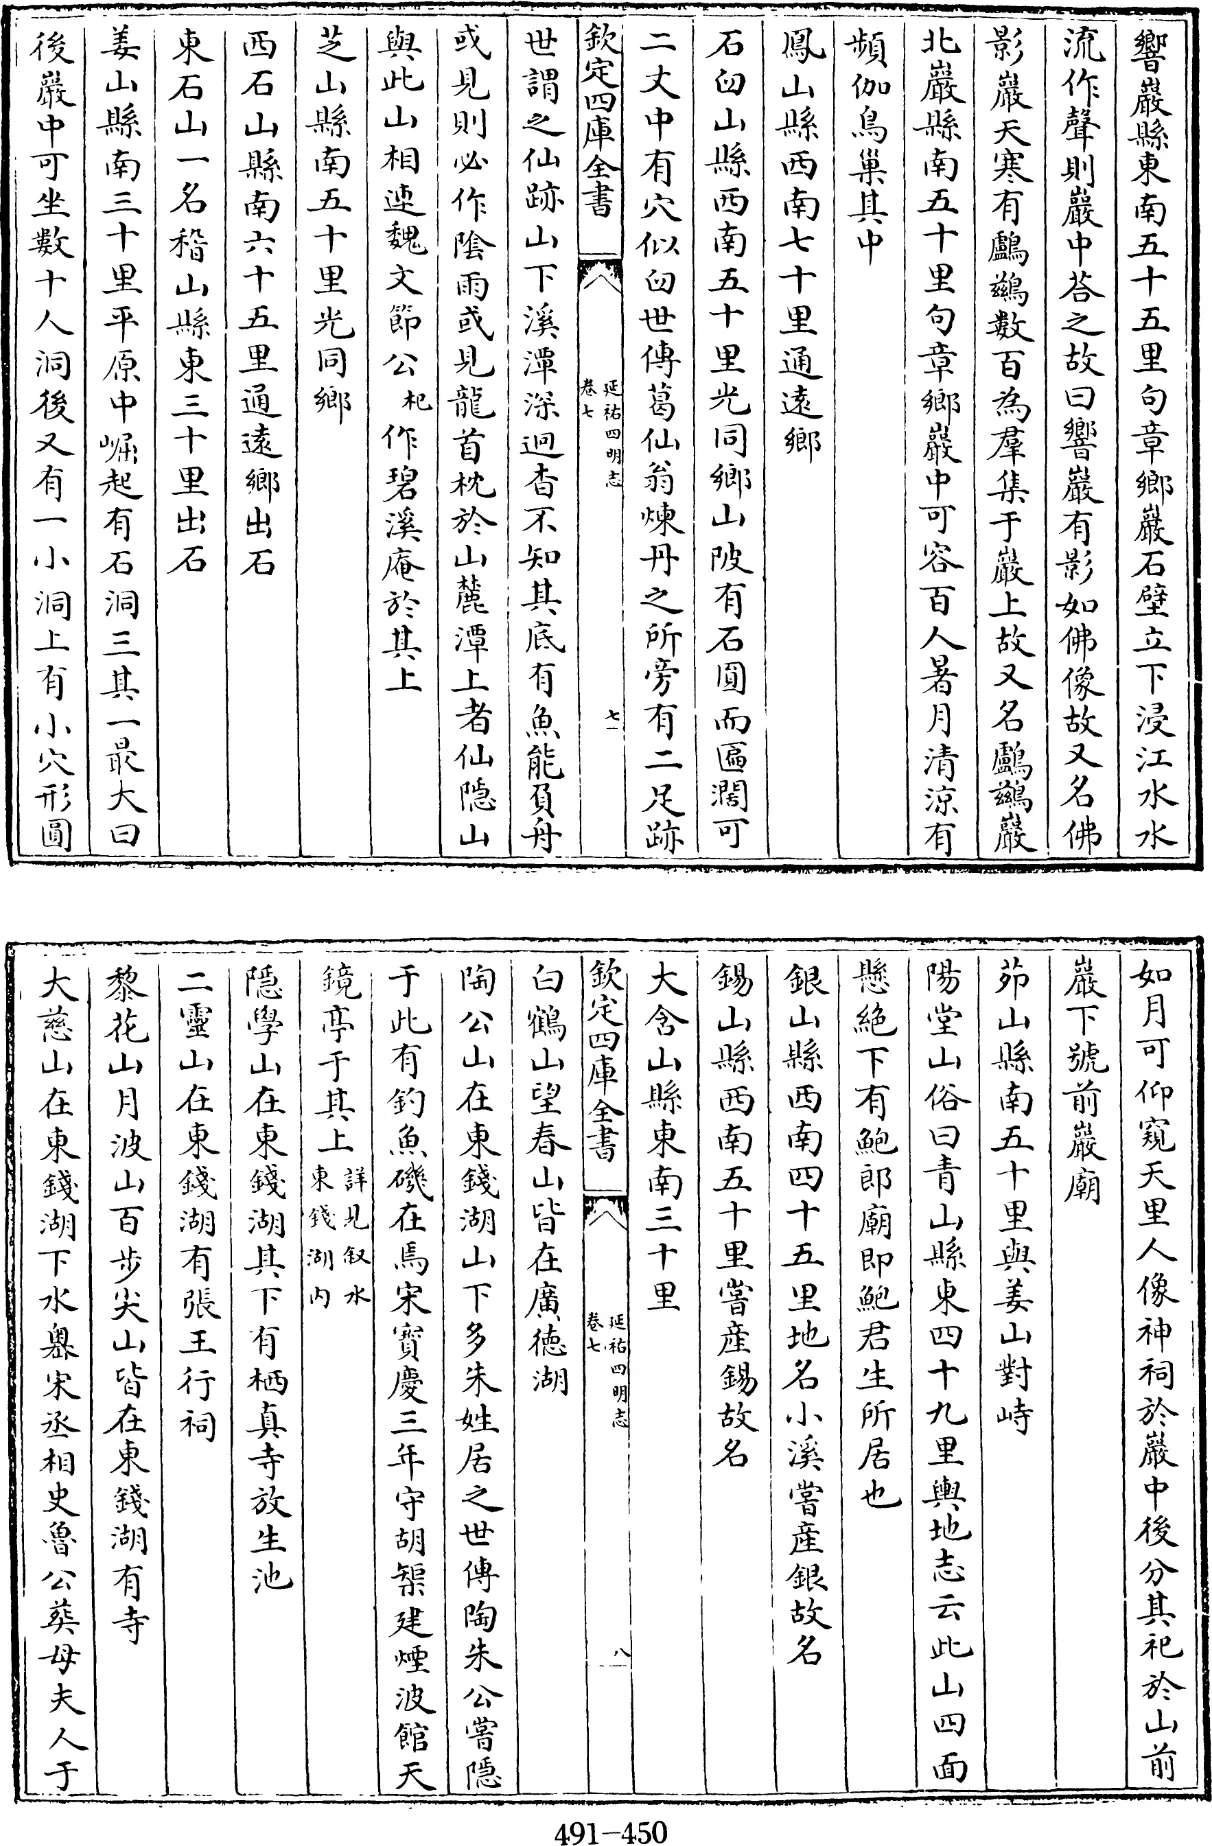 響巖縣東南五十五里句章鄉巖石壁立下浸江水水
流作聲則巖中荅之故曰響巖有影如佛像故又名佛
影巖天寒有鸕鷀數百為羣集于巖上故又名鸕鷀巖
北巖縣南五十里句章鄉巖中可容百人暑月清涼有
頻伽鳥巢其中
鳳山縣西南七十里通遠鄉
石臼山縣西南五十里光同鄉山陂有石圓而匾濶可
二丈中有穴似臼世傳葛仙翁煉丹之所旁有二足跡
欽定四庫全書
延祐四明志
卷七
七
世謂之仙跡山下溪潭深迥杳不知其底有魚能負舟
或見則必作陰雨或見龍首枕於山麓潭上者仙隱山
與此山相連魏文節公杞作碧溪庵於其上
芝山縣南五十里光同鄉
西石山縣南六十五里通遠鄉出石
東石山一名稽山縣東三十里出石
姜山縣南三十里平原中崛起有石洞三其一最大曰
後巖中可坐數十人洞後又有一小洞上有小穴形圓
如月可仰窺天里人像神祠於巖中後分其祀於山前
巖下號前巖廟
茆山縣南五十里與姜山對峙
陽堂山俗曰青山縣東四十九里輿地志云此山四面
懸絶下有鮑郎廟即鮑君生所居也
銀山縣西南四十五里地名小溪嘗産銀故名
錫山縣西南五十里嘗産錫故名
大含山縣東南三十里
欽定四庫全書
延祐四明志
卷七
八
白鶴山望春山皆在廣德湖
陶公山在東錢湖山下多朱姓居之世傳陶朱公嘗隱
于此有釣魚磯在焉宋寳慶三年守胡榘建煙波館天
鏡亭于其上詳見叙水東錢湖内
隱學山在東錢湖其下有栖真寺放生池
二靈山在東錢湖有張王行祠
黎花山月波山百步尖山皆在東錢湖有寺
大慈山在東錢湖下水㠗宋丞相史魯公葬母夫人于
491-450